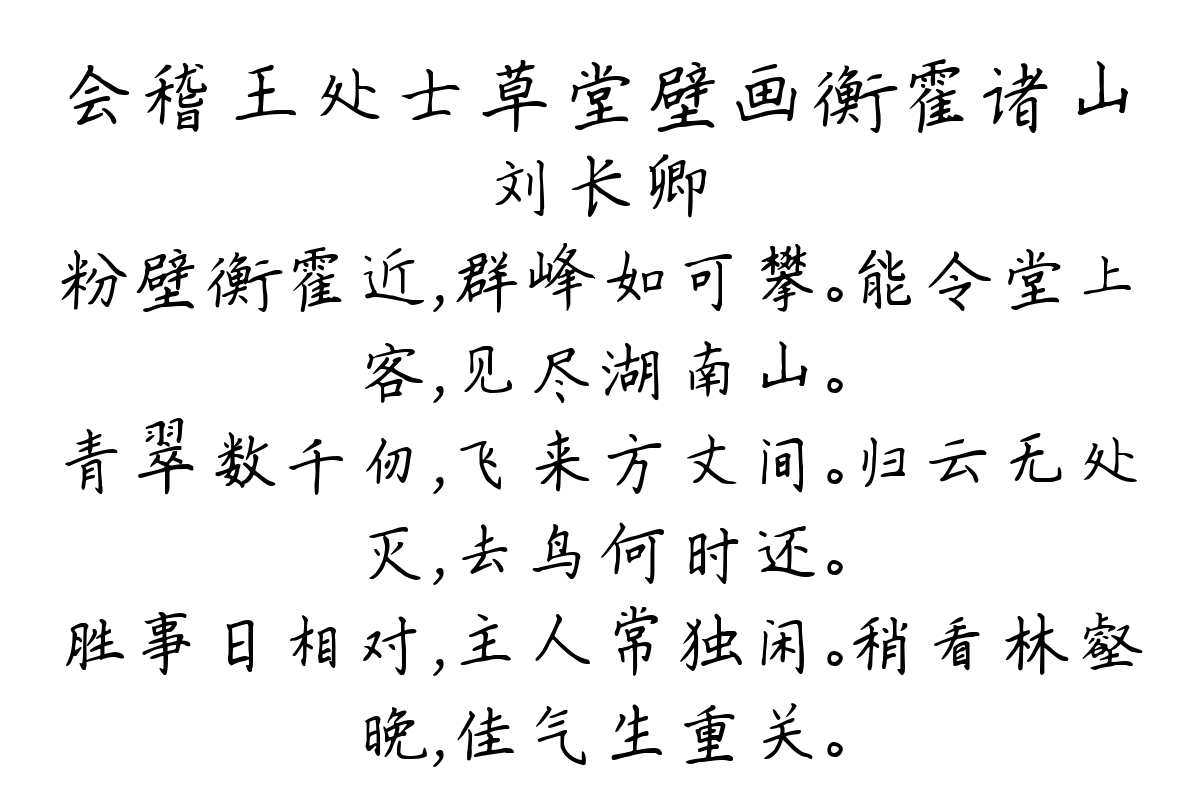 会稽王处士草堂壁画衡霍诸山
刘长卿
粉壁衡霍近,群峰如可攀。能令堂上
客,见尽湖南山。
青翠数千仞,飞来方丈间。归云无处
灭,去鸟何时还。
胜事日相对,主人常独闲。稍看林壑
晚,佳气生重关。